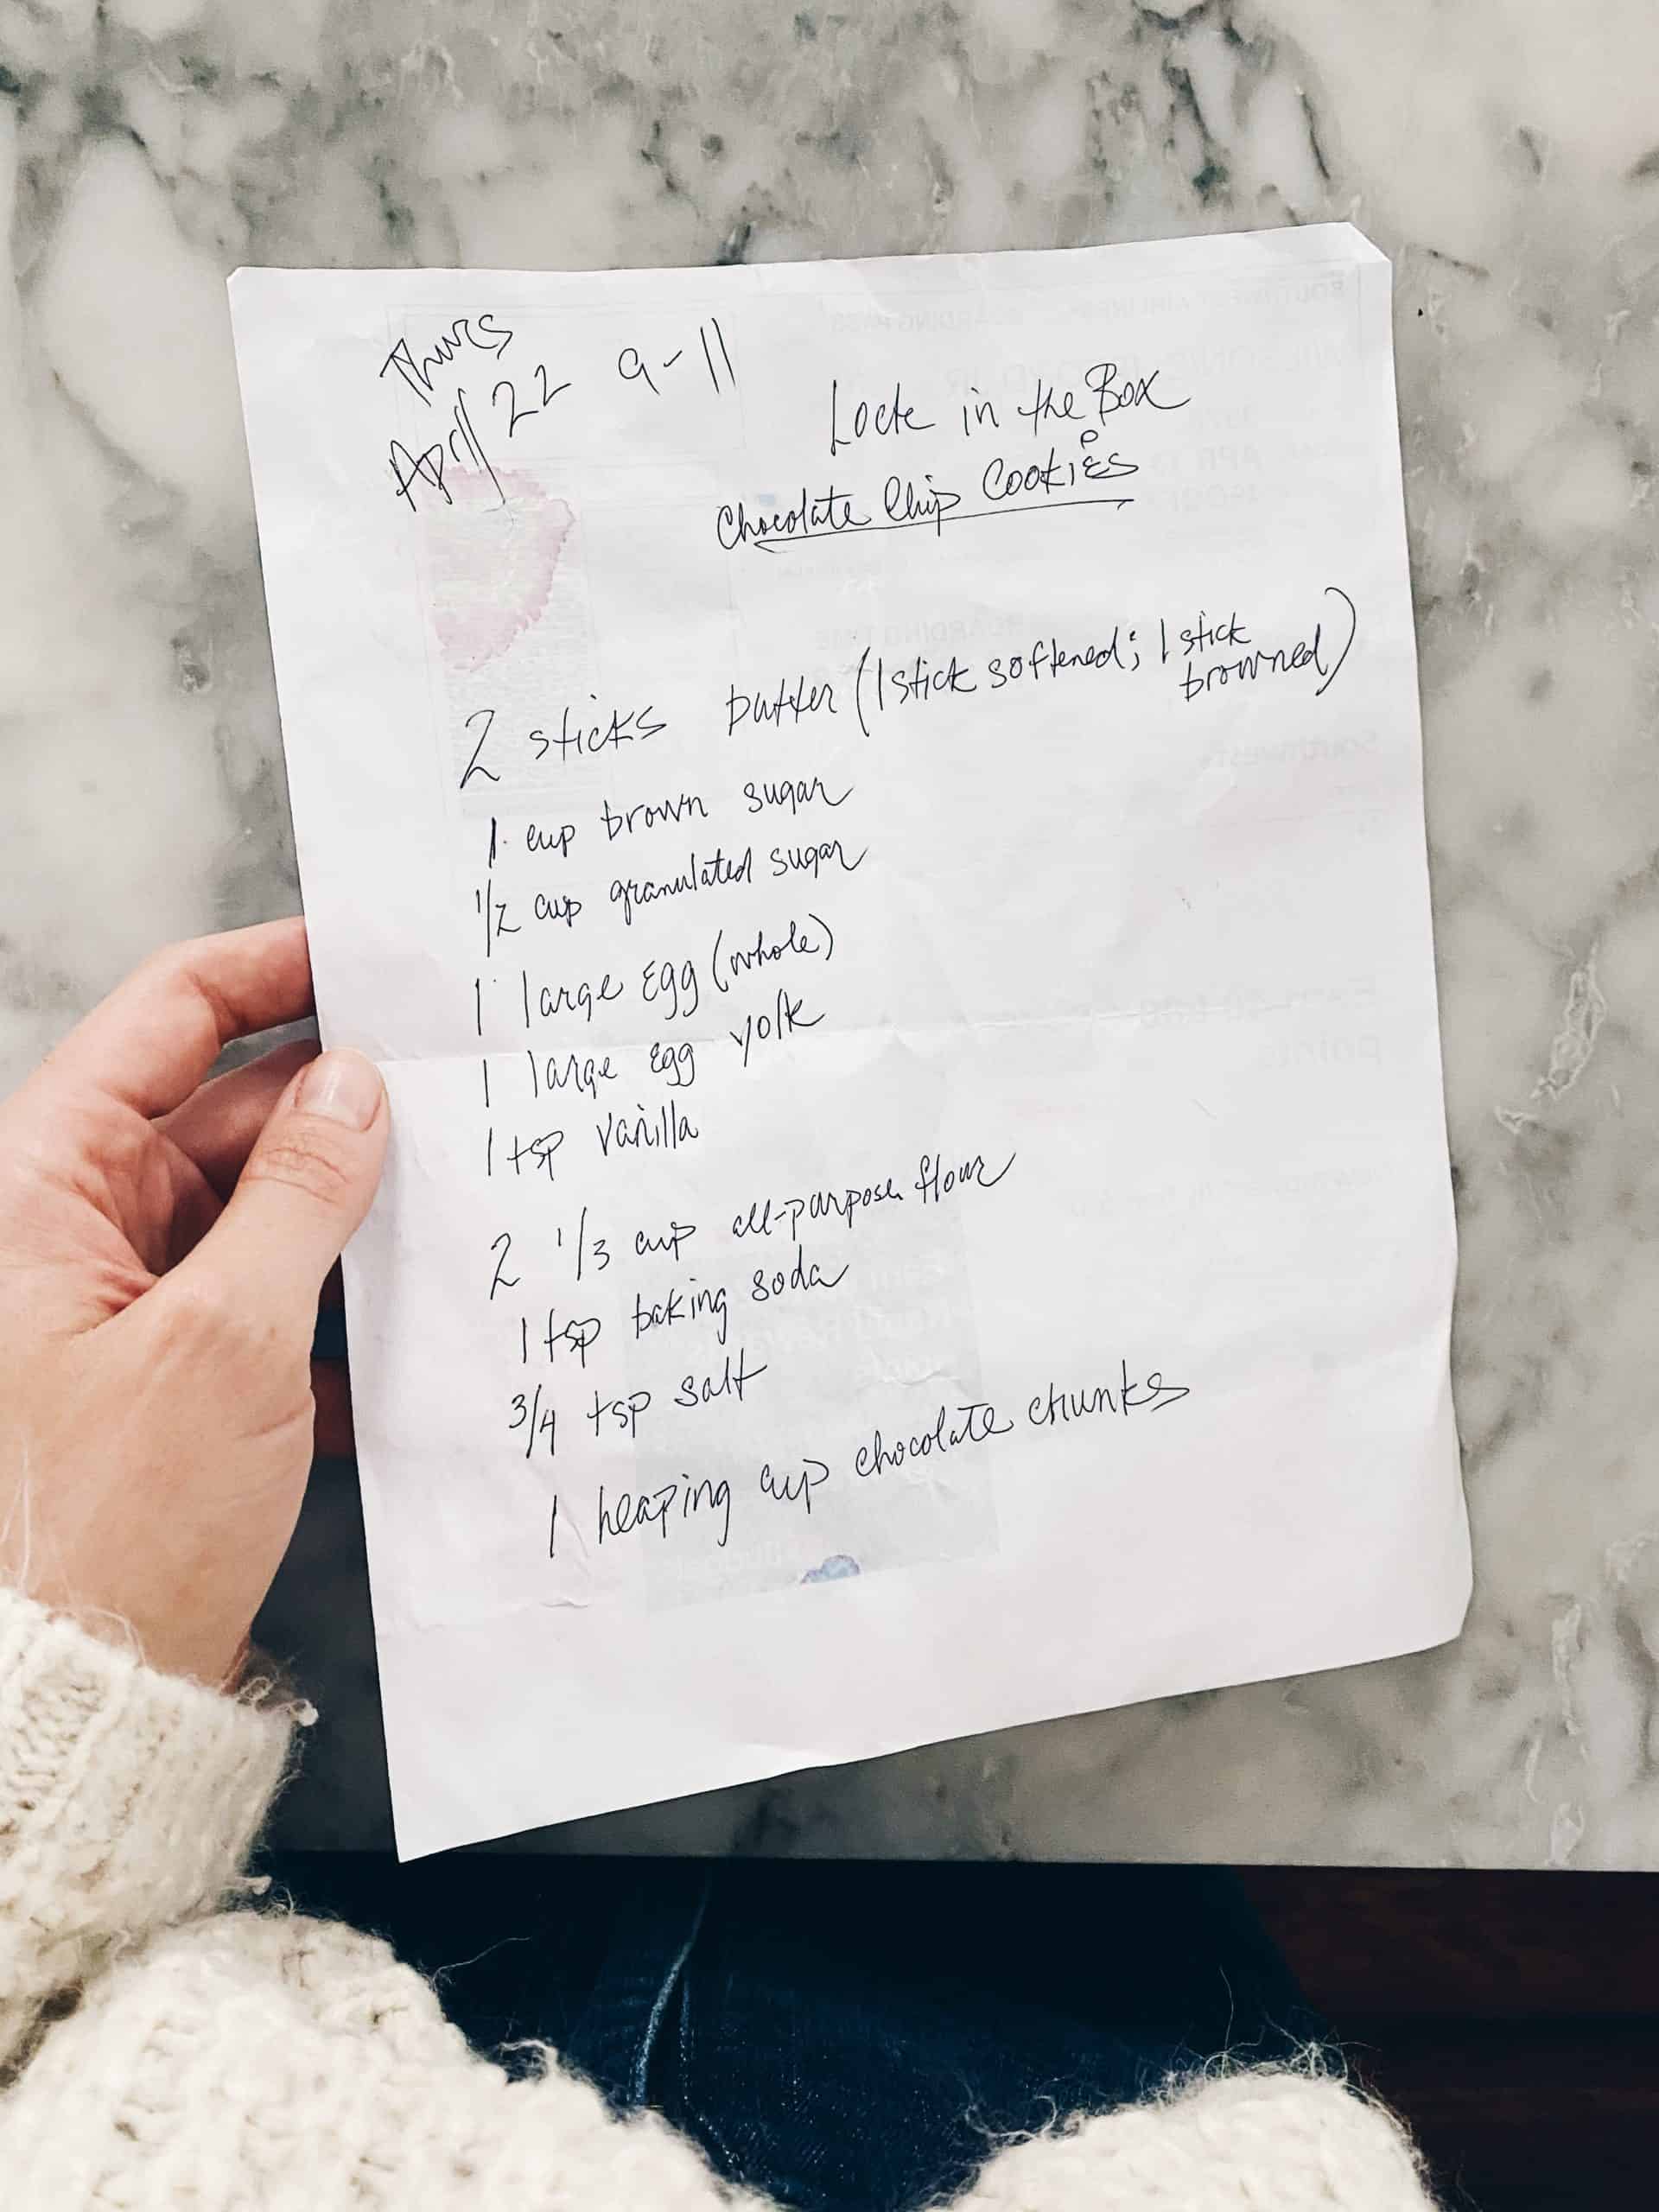 Thurs
April 22 9-11
Lock in the Box
Chocolate Chip Cookies
2 sticks butter (1 stick softened; 1 stick
browned)
1 cup brown sugar
1/2 cup granulated sugar
1 large egg (whole)
1 large egg yolk
1 tsp vanilla
2 1/3 cup all-purpose flour
1 tsp baking soda
3/4 tsp salt
1 heaping cup chocolate chunks